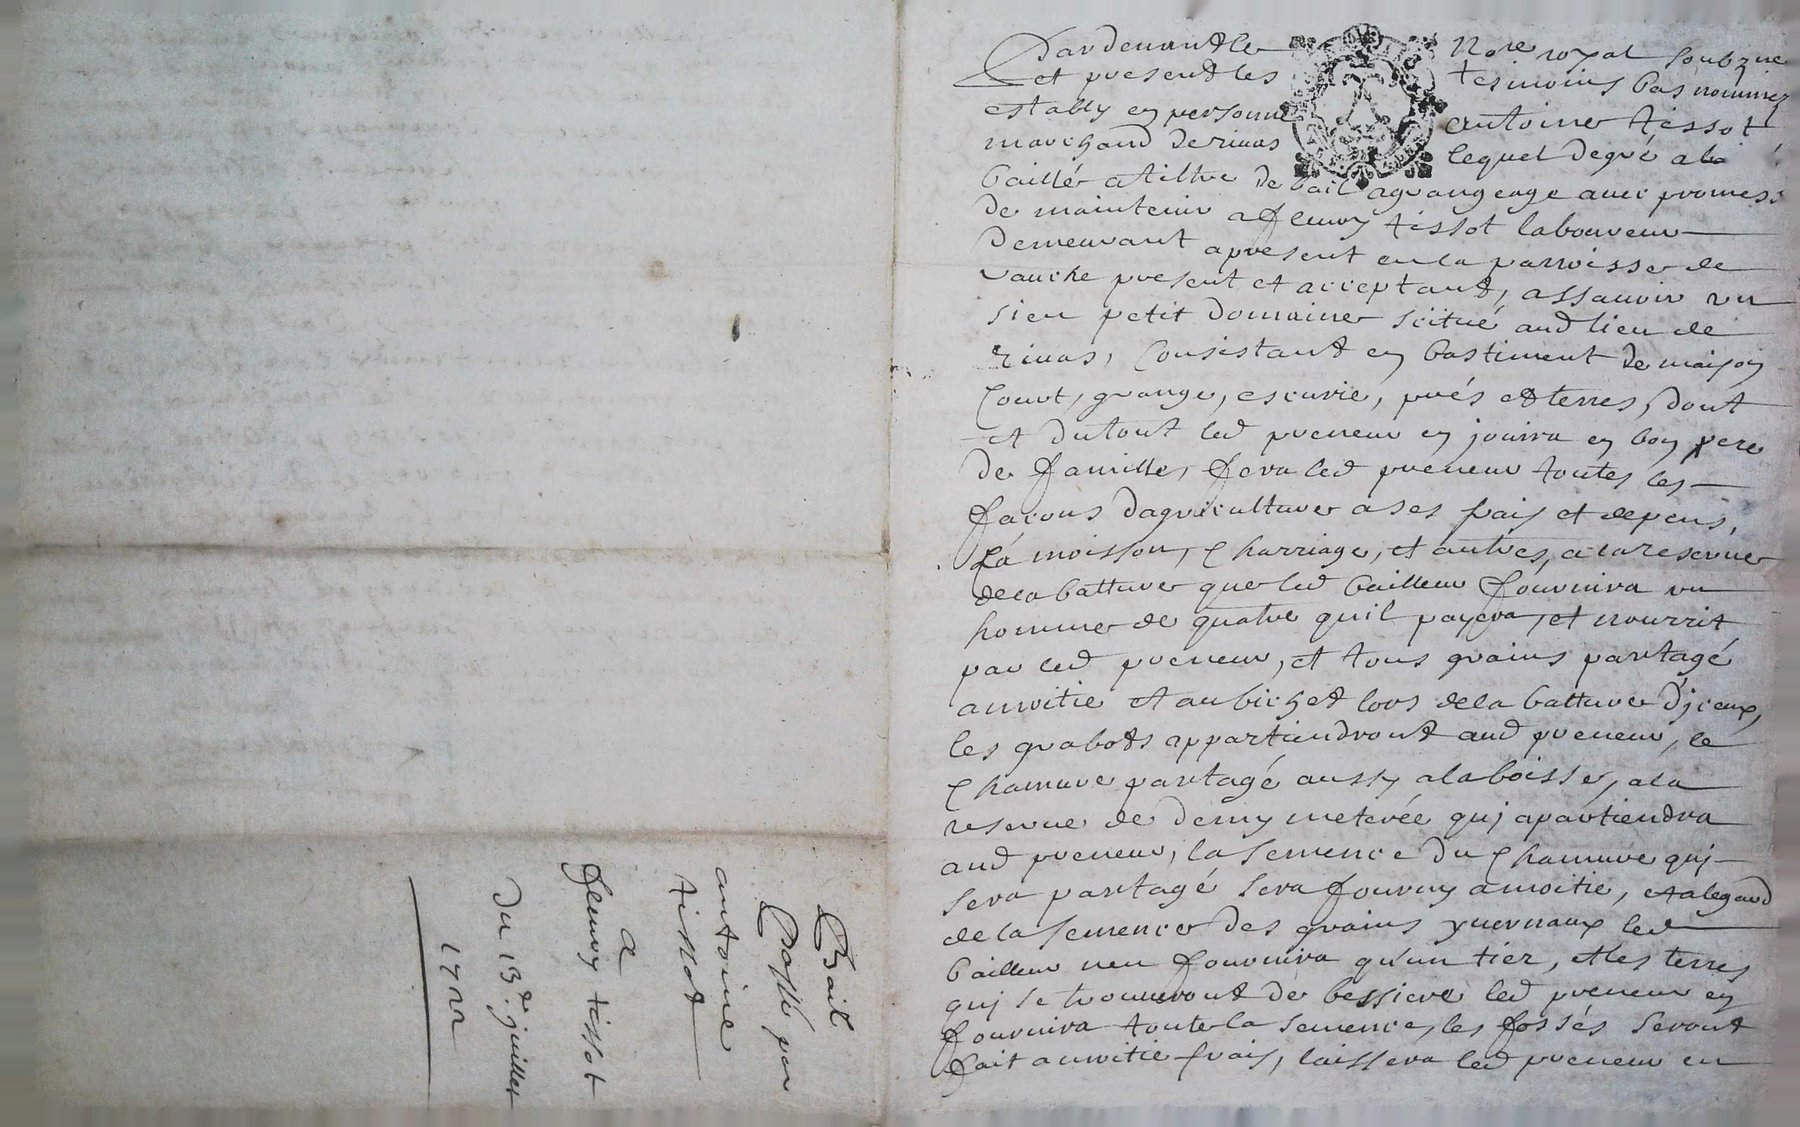 Bail
Passé par
antoine
tissot
a
fleury tissot
du 13e juillet
1722
Pardevant le Nore royal soubzne
et presend les tesmoins bas nommez
estably en personne antoine tissot
marchand de rivas lequel de gré a la
baillé a tiltre de bail a grangeage avec promess
de maintenir a fleury tissot laboureur
demeurant apresent en la parroisse de
vauche present et acceptant, assavoir un
sien petit domaine scitué aud lieu de
rivas, consistant en bastiment de maison
court, grange, escurie, prés et terres, dont
et du tout led preneur en jouira en bon pere
de famille, fera led preneur toutes les
facons dagriculture a ses frais et depens,
la moisson, charriage, et autres, a la reserve
de la batture que led bailleur fournira un
homme de quatre quil payera, et nourrit
par led preneur, et tous grains partagé
a moitie et au bichet lors de la batture d'jceux,
les grabots appartiendront aud preneur, le
chanvre partagé aussy a la boisse, a la
reserve de demy meterée quj apartiendra
aud preneur, la semence du chanvre quj
sera partagé sera fourny a moitie, et a legard
de la semence des grains yvernaux led
bailleur nen fournira qu'un tier, et les terres
quj se trouveront de bessiere led preneur en
fournira toute la semence, les fossés seront
fait a moitie frais, laissera led preneur en